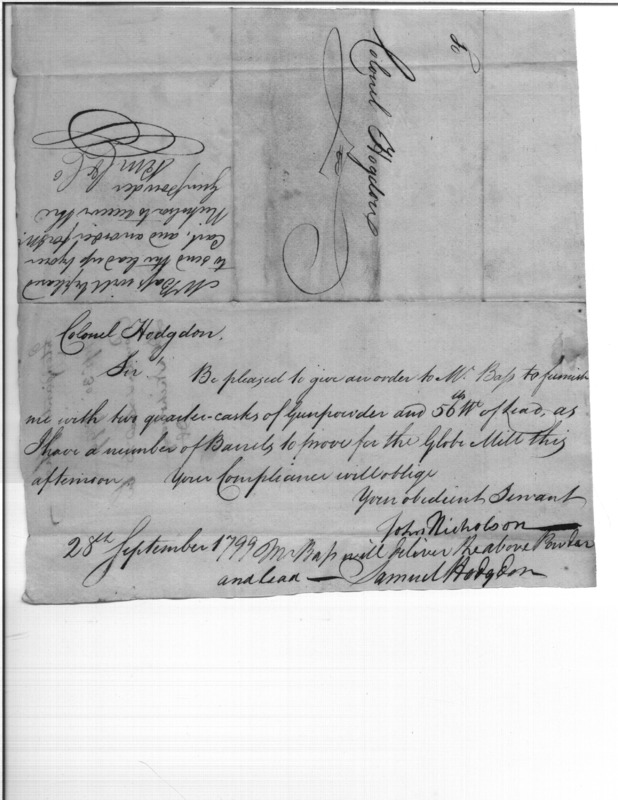 To
Colonel Hogdon
Mr Bass will please
to send the lead up by our
Cart, and an order for Mr.
Nicholson to receive the
Gunpowder
Colonel Hodgdon.
Sir Be pleased to give an order to Mr. Bass to furnish
me with two quarter-casks of Gunpowder and 56 lb Wt of Lead, as
I have a number of Barrels to prove for the Globe Mill this
afternoon Your Compliance will oblige
Your obedient Servant
John Nicholson
28th September 1799 Mr Bass will deliver the above Powder
and lead — Samuel Hodgdon